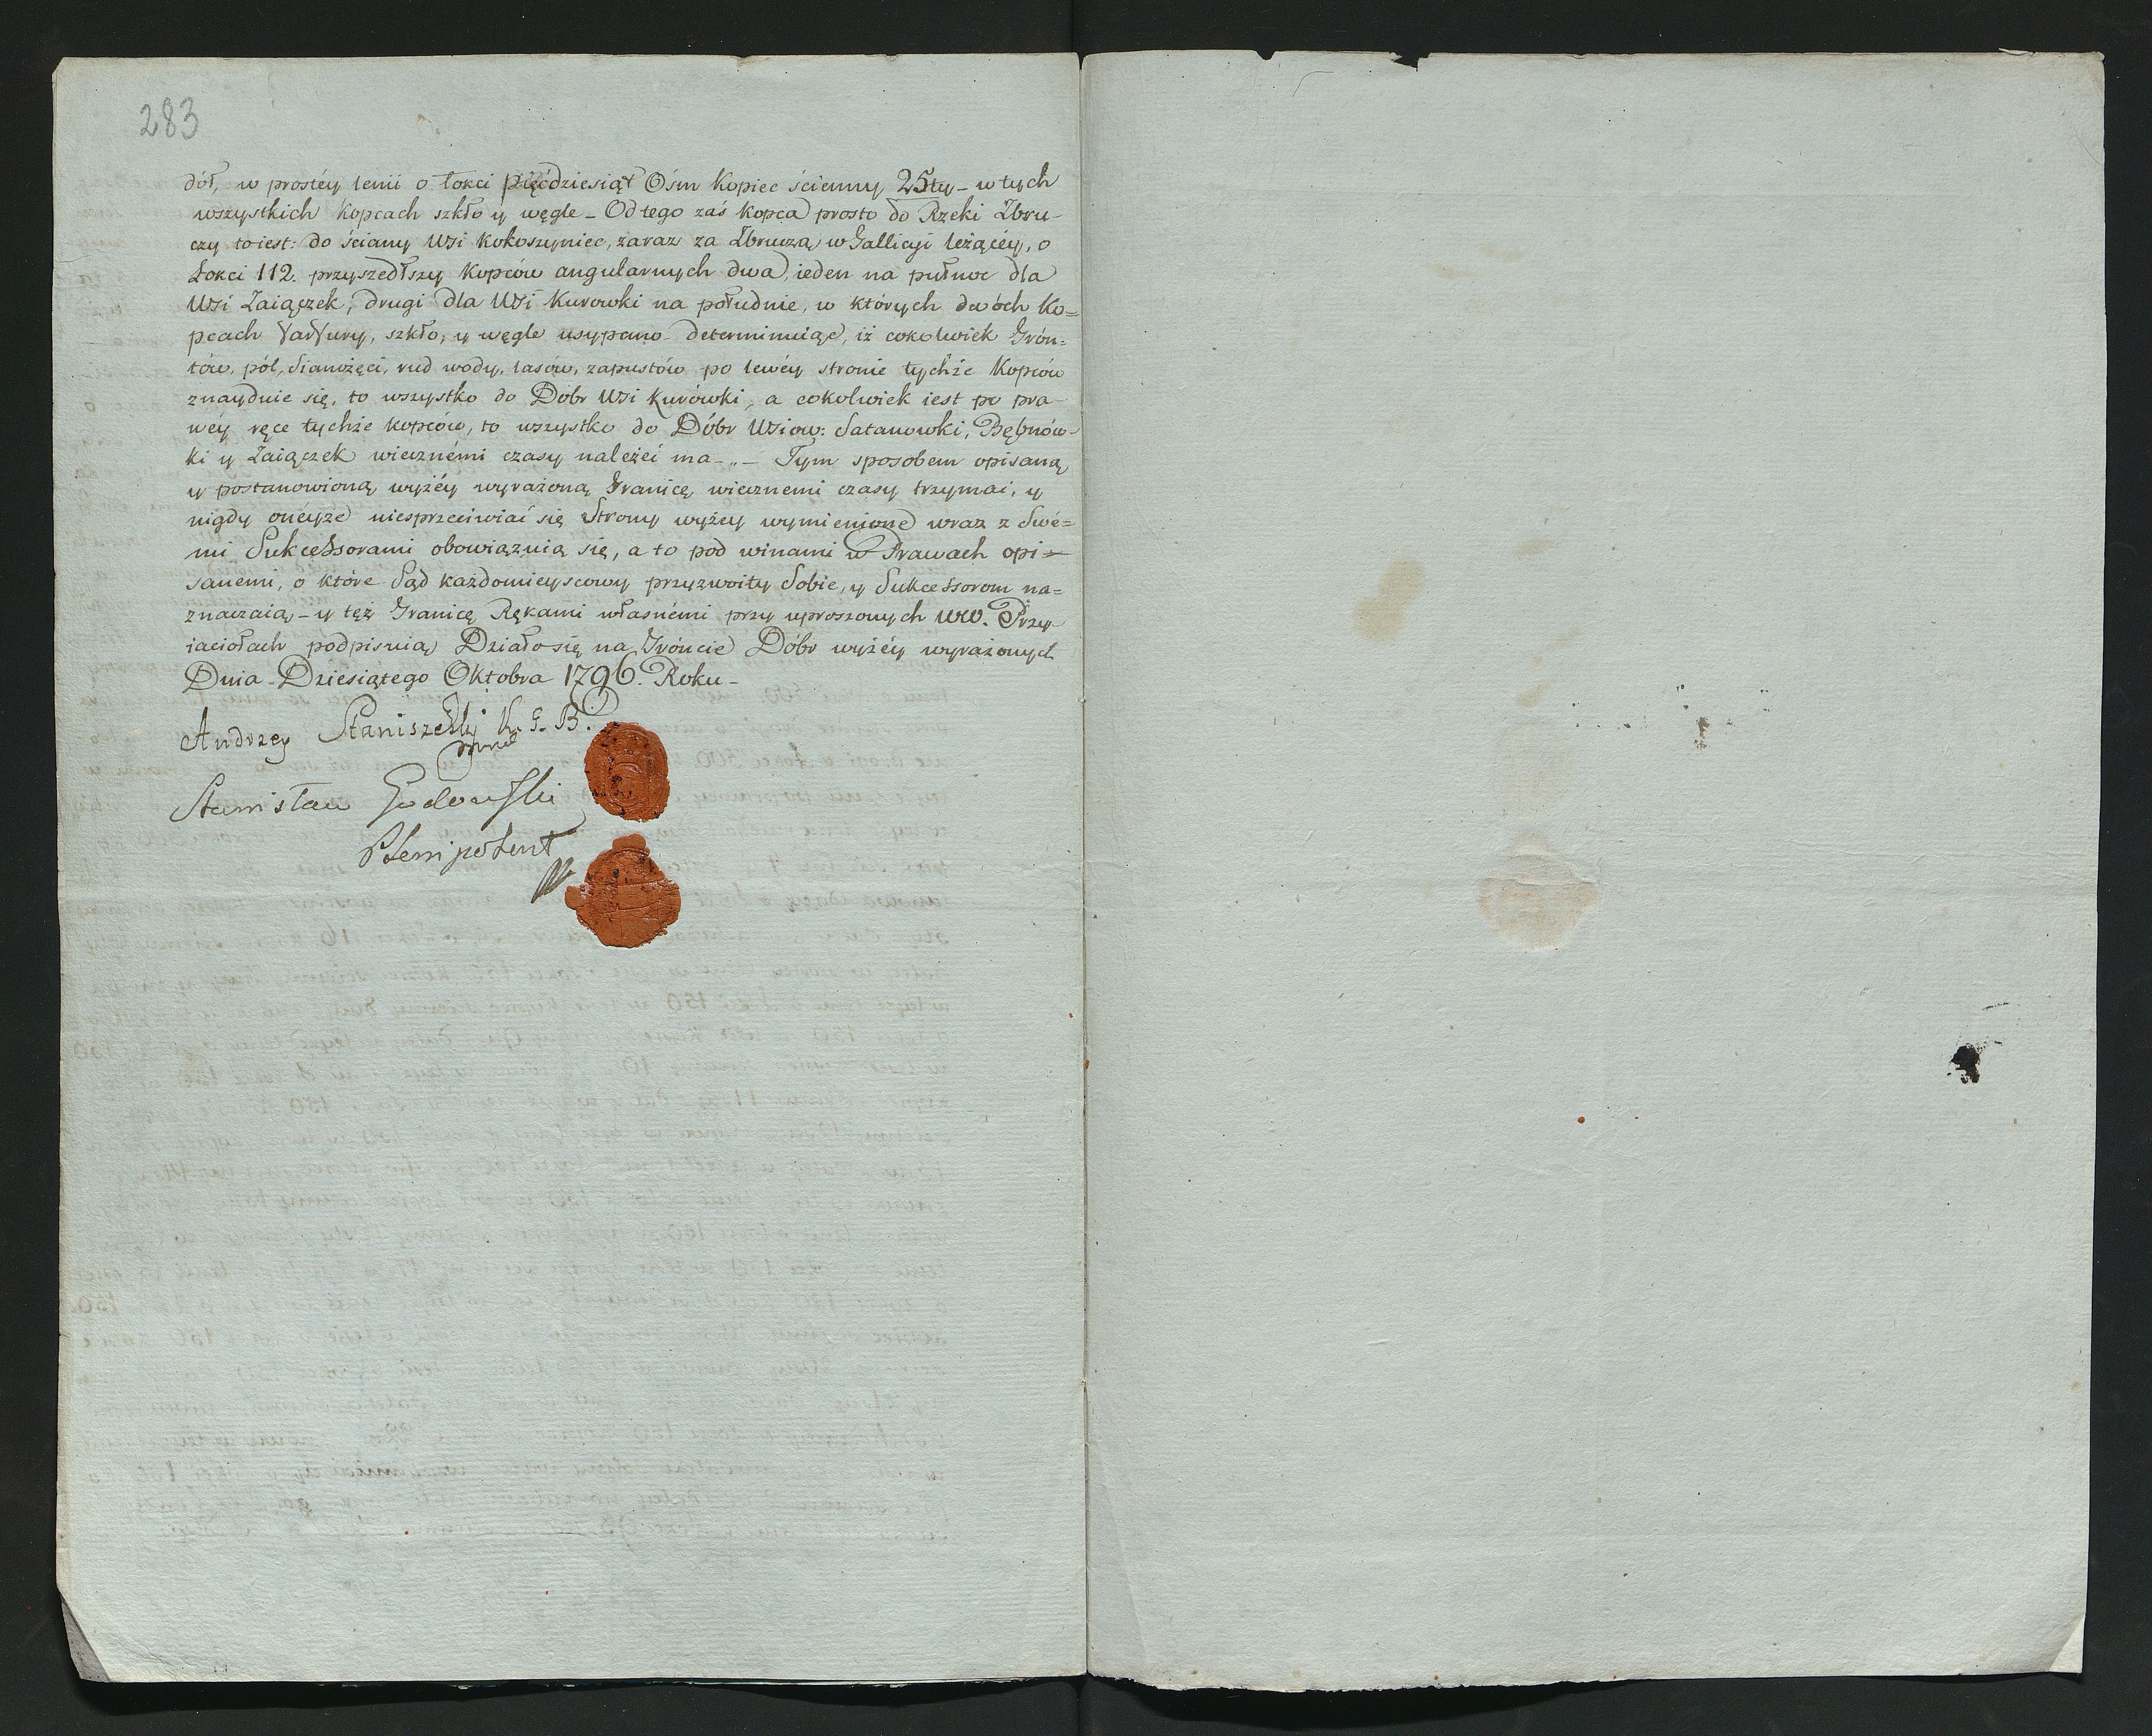 283
dół, w prostéy lenii o łokci pięćdziesiąt Ośm Kopiec ścienny 25ty – w tych
wszystkich kopcach szkło y węgle – Od tego zaś kopca prosto do Rzeki Zbru-
czy toiest: do ściany Wsi Kokoszyniec, zaraz za Zbruczą w Gallicyi leżącéy, o
Łokci 112. przyszedłszy Kopców angularnych dwa, ieden na pułnoc dla
Wsi Zaiączek, drugi dla Wsi Kurowki na południe, w których dwóch Ko=
pcach szkło, y węgle usypano determinuiąc, iż cokolwiek Grón=
tów, pól, Sianożęci, rud wody, lasów, zapustów po lewéy stronie tychże Kopców
znayduie się, to wszystko do Dóbr Wsi Kurówki, a cokolwiek iest po pra-
wéy ręce tychże kopców, to wszystko do Dóbr Wsiow: Satanowki, Bębnów-
ki y Zaiączek wiecznémi czasy należéć ma –„– Tym sposobem opisaną
y postanowioną wyżéy wyrażoną Granicę wiecznemi czasy trzymać, y
nigdy onéyże niesprzeciwiać się Strony wyżey wymienione wraz z Swé=
mi Sukcessorami obowiązuią się, a to pod winami w Prawach opi-
sanemi, o które Sąd każdomieyscowy przyzwoity Sobie, y Sukcessorom na=
znaczaią – y tęż Granicę Rękami własnémi przy uproszonych WW. Przy-
iaciołach podpisuią Działo się na Gróncie Dóbr wyżéy wyrażonych
Dnia Dziesiątego Oktobra 1796. Roku –
Andrzey Staniszewski K. G. B.
Stanisław
Plenipotent